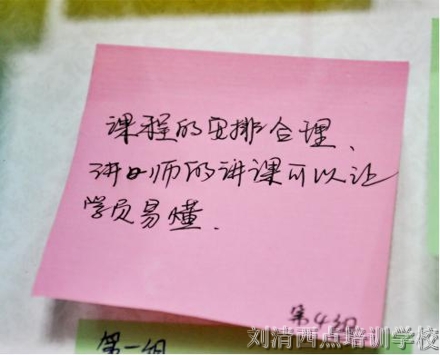 课程的安排合理、
讲师的讲课可以让
学员易懂.
第4组
第一组
刘清西点培训学校